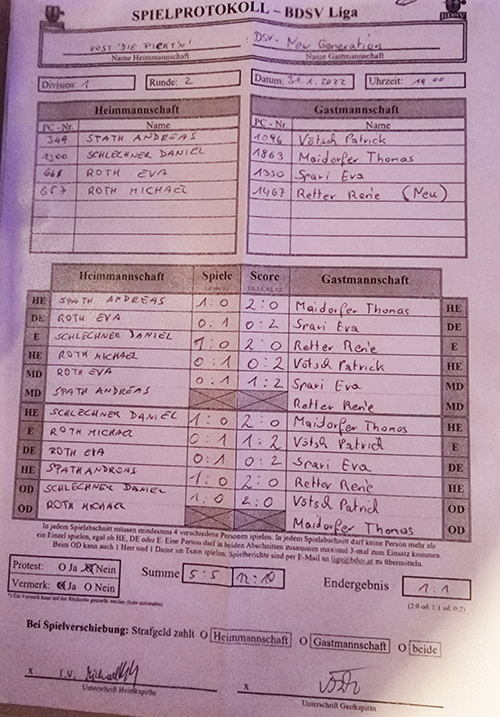 SPIELPROTOKOLL – BDSV Liga
VOST "DIE PICKT'N" DSV- New Generation
Name Heimmannschaft Name Gastmannschaft
Division: 1 Runde: 2 Datum: 31.1.2022 Uhrzeit: 19 00
Heimmannschaft Gastmannschaft
PC - Nr. Name PC - Nr. Name
344 SPATH ANDREAS 1096 Vötsch Patrick
1300 SCHLECHNER DANIEL 1863 Maidorfer Thomas
668 ROTH EVA 1350 Spari Eva
657 ROTH MICHAEL 1467 Retter Rene (Neu)
Heimmannschaft Spiele Score Gastmannschaft
HE SPATH ANDREAS 1:0 2:0 Maidorfer Thomas HE
DE ROTH EVA 0:1 0:2 Spari Eva DE
E SCHLECHNER DANIEL 1:0 2:0 Retter Rene E
HE ROTH MICHAEL 0:1 0:2 Vötsch Patrick HE
MD ROTH EVA 0:1 1:2 Spari Eva MD
MD SPATH ANDREAS Retter Rene MD
HE SCHLECHNER DANIEL 1:0 2:0 Maidorfer Thomas HE
E ROTH MICHAEL 0:1 1:2 Vötsch Patrick E
DE ROTH EVA 0:1 0:2 Spari Eva DE
HE SPATH ANDREAS 1:0 2:0 Retter Rene HE
OD SCHLECHNER DANIEL 1:0 2:0 Vötsch Patrick OD
OD ROTH MICHAEL Maidorfer Thomas OD
In jedem Spielabschnitt müssen mindestens 4 verschiedene Personen spielen. In jedem Spielabschnitt darf keine Person mehr als
ein Einzel spielen, egal ob HE, DE oder E. Eine Person darf in beiden Abschnitten zusammen maximal 3-mal zum Einsatz kommen.
Beim OD kann auch 1 Herr und 1 Dame im Team spielen. Spielberichte sind per E-Mail an liga@bdsv.at zu übermitteln.
Protest: O Ja O Nein Summe 5:5 12:10 Endergebnis 1:1
Vermerk: O Ja O Nein
(2:0 od. 1:1 od. 0:2)
Bei Spielverschiebung: Strafgeld zahlt O Heimmannschaft O Gastmannschaft O beide
x x
Unterschrift Heimkapitän Unterschrift Gastkapitän